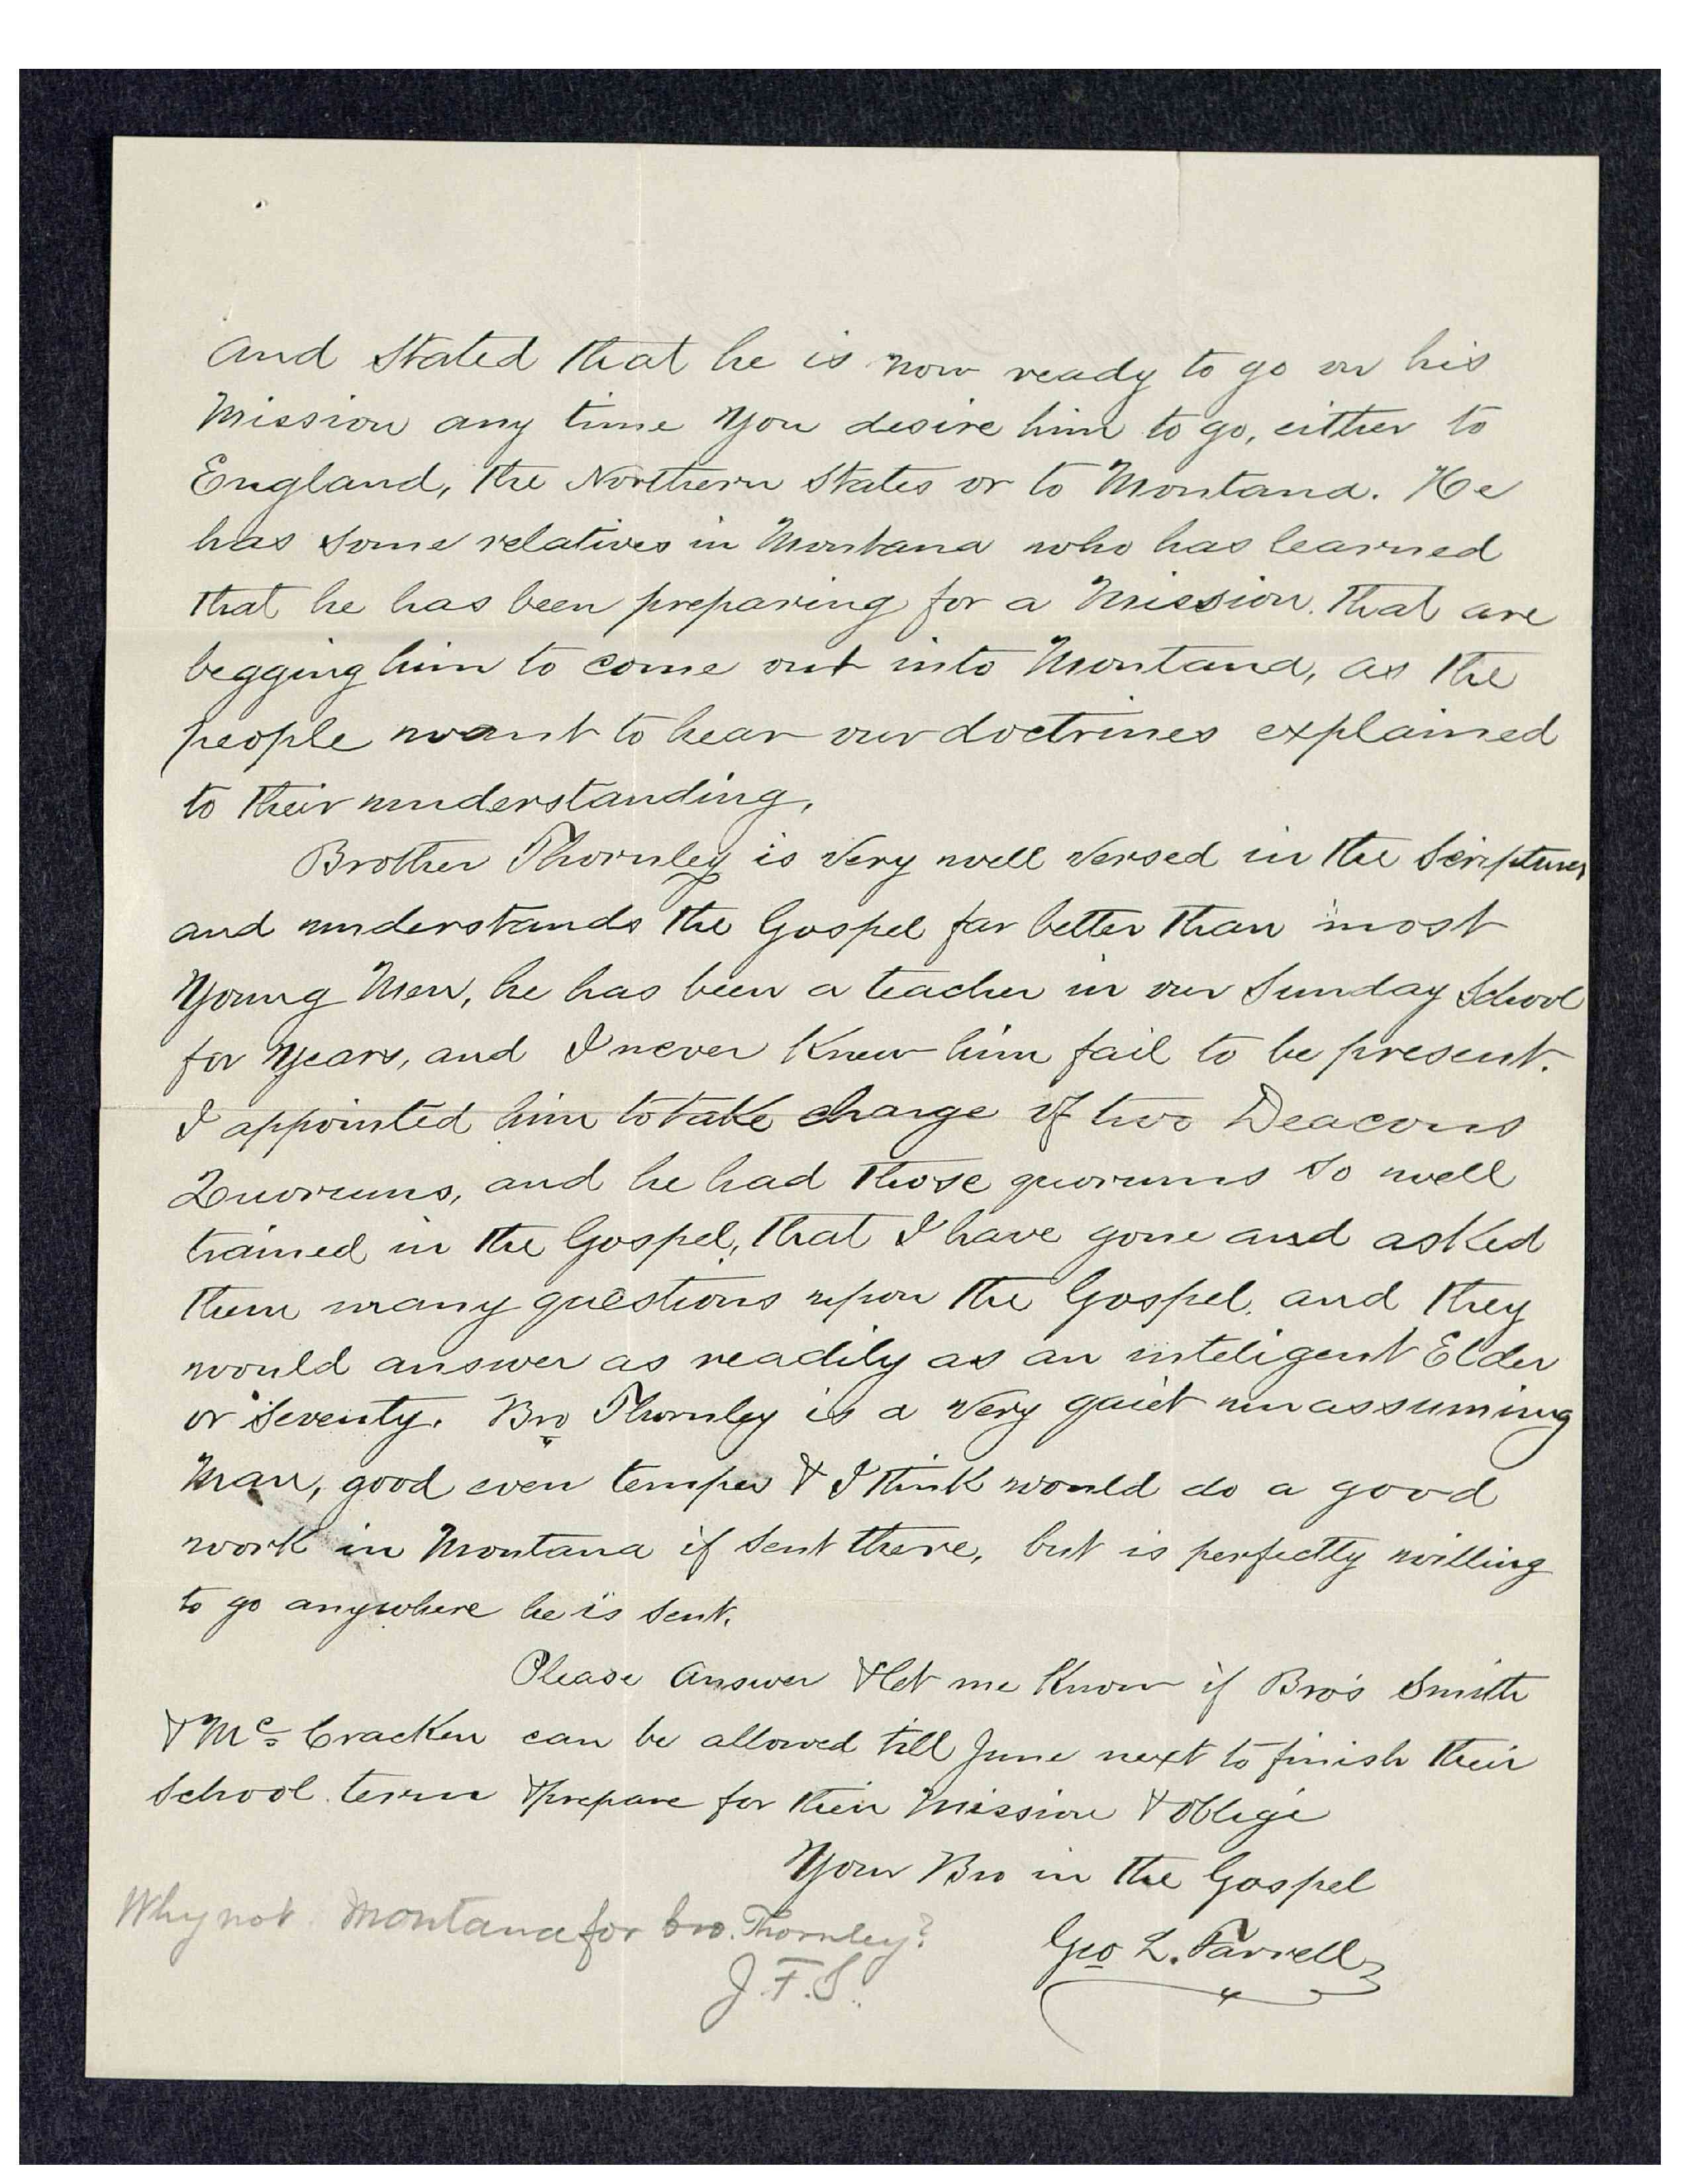 and Stated that he is now ready to go on his
Mission any time you desire him to go, either to
England, the Northern States or to Montana. He
has some relatives in Montana who has learned
that he has been preparing for a Mission. that are
begging him to come out into Montana, as the
people want to hear our doctrines explained
to their understanding,
Brother Thornley is very well versed in the Scriptures
and understands the Gospel far better than most
Young Men, he has been a teacher in our Sunday School
for years, and I never knew him fail to be present.
I appointed him to take charge of two Deacons
Quorums, and he had those quorums so well
trained in the Gospel, that I have gone and asked
them many questions upon the Gospel, and they
would answer as readily as an inteligent Elder
or Seventy. Bro Thornley is a very quiet unassuming
Man, good even temper & I think would do a good
work in Montana if sent there, but is perfectly willing
to go anywhere he is sent.
Please Answer & let me know if Bro's Smith
& Mc Cracken can be allowed till June next to finish their
School term & prepare for their Mission & oblige
Your Bro in the Gospel
Geo L. Farrell
Why not Montana for bro. Thornley?
J.F.S.